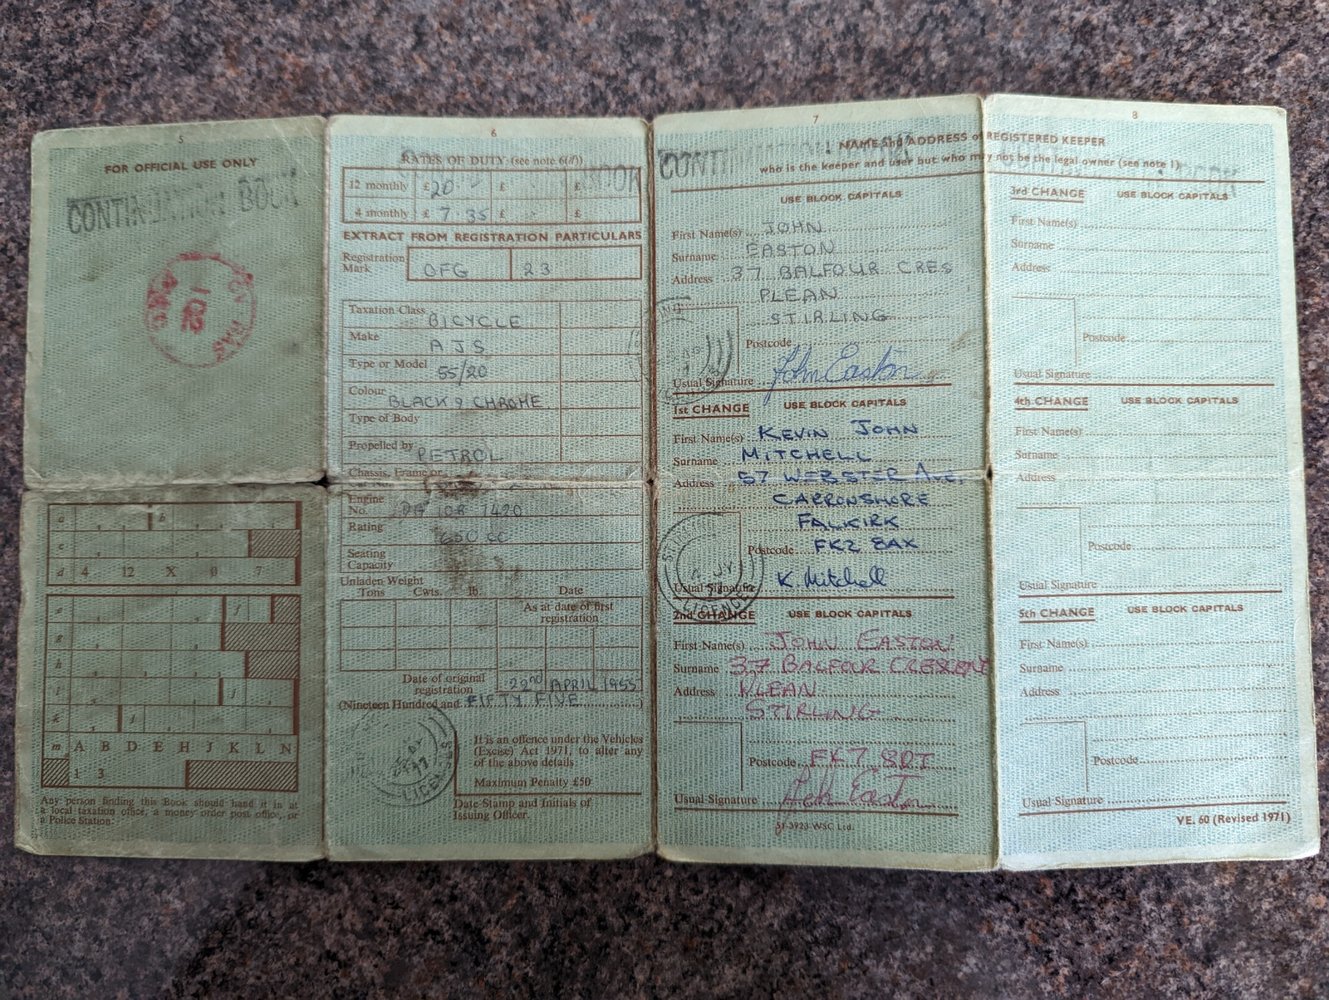 5
FOR OFFICIAL USE ONLY
CONTINUATION BOOK
a b
c
d 4 12 X 0 7
e f
g
h
i j
k l
m A B D E H J K L N
1 3
Any person finding this Book should hand it in at
a local taxation office, a money order post office, or
a Police Station.
6
RATES OF DUTY (see note 6(f))
12 monthly £ 20 £ £
4 monthly £ 7.35 £ £
EXTRACT FROM REGISTRATION PARTICULARS
Registration
Mark OFG 23
Taxation Class BICYCLE
Make AJS
Type or Model 55/20
Colour BLACK & CHROME
Type of Body
Propelled by PETROL
Chassis, Frame or
Engine
No. 1420
Rating 650 cc
Seating
Capacity
Unladen Weight
Tons Cwts. lb. Date
As at date of first
registration
Date of original
registration 22nd APRIL 1955
(Nineteen Hundred and FIFTY FIVE)
It is an offence under the Vehicles
(Excise) Act 1971, to alter any
of the above details
Maximum Penalty £50
Date Stamp and Initials of
Issuing Officer.
7
NAME and ADDRESS of REGISTERED KEEPER
who is the keeper and user but who may not be the legal owner (see note 1)
CONTINUATION BOOK
USE BLOCK CAPITALS
First Name(s) JOHN
Surname EASTON
Address 37 BALFOUR CRES
PLEAN
STIRLING
Postcode
Usual Signature John Easton
1st CHANGE USE BLOCK CAPITALS
First Name(s) KEVIN JOHN
Surname MITCHELL
Address 57 WEBSTER AVE.
CARRONSHORE
FALKIRK
Postcode FK2 8AX
Usual Signature K. Mitchell
2nd CHANGE USE BLOCK CAPITALS
First Name(s) JOHN EASTON
Surname 37 BALFOUR CRESCENT
Address PLEAN
STIRLING
Postcode FK7
Usual Signature John Easton
51-3923 WSC Ltd.
8
3rd CHANGE USE BLOCK CAPITALS
First Name(s)
Surname
Address
Postcode
Usual Signature
4th CHANGE USE BLOCK CAPITALS
First Name(s)
Surname
Address
Postcode
Usual Signature
5th CHANGE USE BLOCK CAPITALS
First Name(s)
Surname
Address
Postcode
Usual Signature
VE. 60 (Revised 1971)